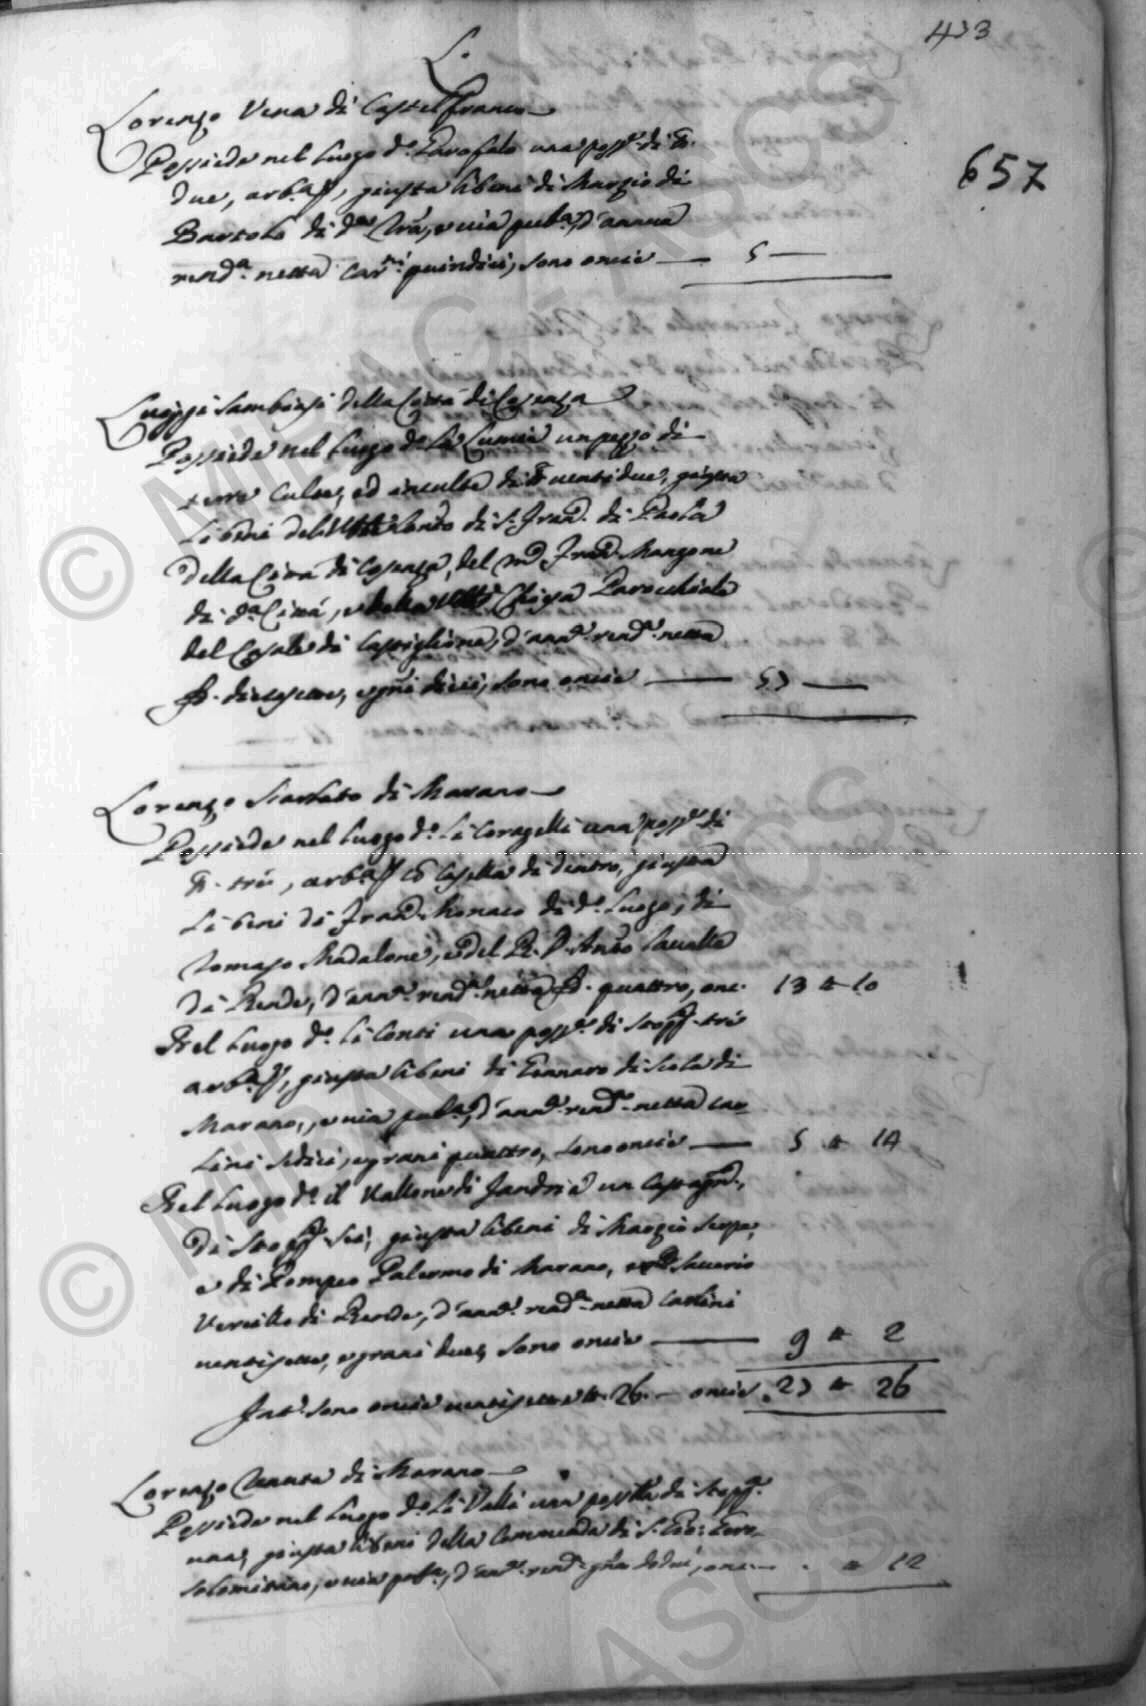 433
L.
657
Lorenzo Vena di Castelfranco
Possiede nel luogo d.º Garofalo una poss.e di tt.
due, arb.ta, giusta li beni di Marzio di
Bartolo di d.a Trà, e via pub.a, d'annua
rend.a netta car.ni quindici, sono oncie — 5 —
Luiggi Sambiasi della Città di Cosenza
Possiede nel luogo d.º la Cumia un pezzo di
terre culte, ed inculte di tt. ventidue, giusta
li beni del di S. Fran.co di Paola
della Città di Cosenza, del m.co Fran.co Mangone
di d.a Città, e della Chiesa Parocchiale
del Casale di Castiglione, d'ann.a rend.a netta
diecisette, e g.ni dieci, sono oncie — 57 —
Lorenzo Scarlato di Marano
Possiede nel luogo d.º li Coragelli una poss.e di
tt. trè, arb.ta cò Casella di dentro, giusta
li beni di Fran.co Monaco di d.º luogo, di
Tomaso Madalone, e del R. D. Ant.o Cavallo
di Rende, d'ann.a rend.a netta quattro, onc. 13 10
Nel luogo d.º li Conti una poss.e di stopp. trè
arb.ta, giusta li beni di Gennaro di Scola di
Marano, e via pub.a, d'ann.a rend.a netta car
lini sedici, e grani quattro, sono oncie — 5 14
Nel luogo d.º il Vallone di Jandria un Castagn.
di stopp. sei, giusta li beni di Marzio
e di Pompeo Palermo di Marano, e Saverio
Vercillo di Rende, d'ann.a rend.a netta carlini
ventisette, e grani due, sono oncie — 9 2
sono oncie ventisette 26. — oncie. 27 26
Lorenzo Tenuta di Marano
Possiede nel luogo d.º li Valli una poss.lla di stopp.
una, giusta li beni della Commenda di S. Gio: Gero
solomitano, e via pub.a, d'ann.a rend.a g.na dodici, onc. — . 12